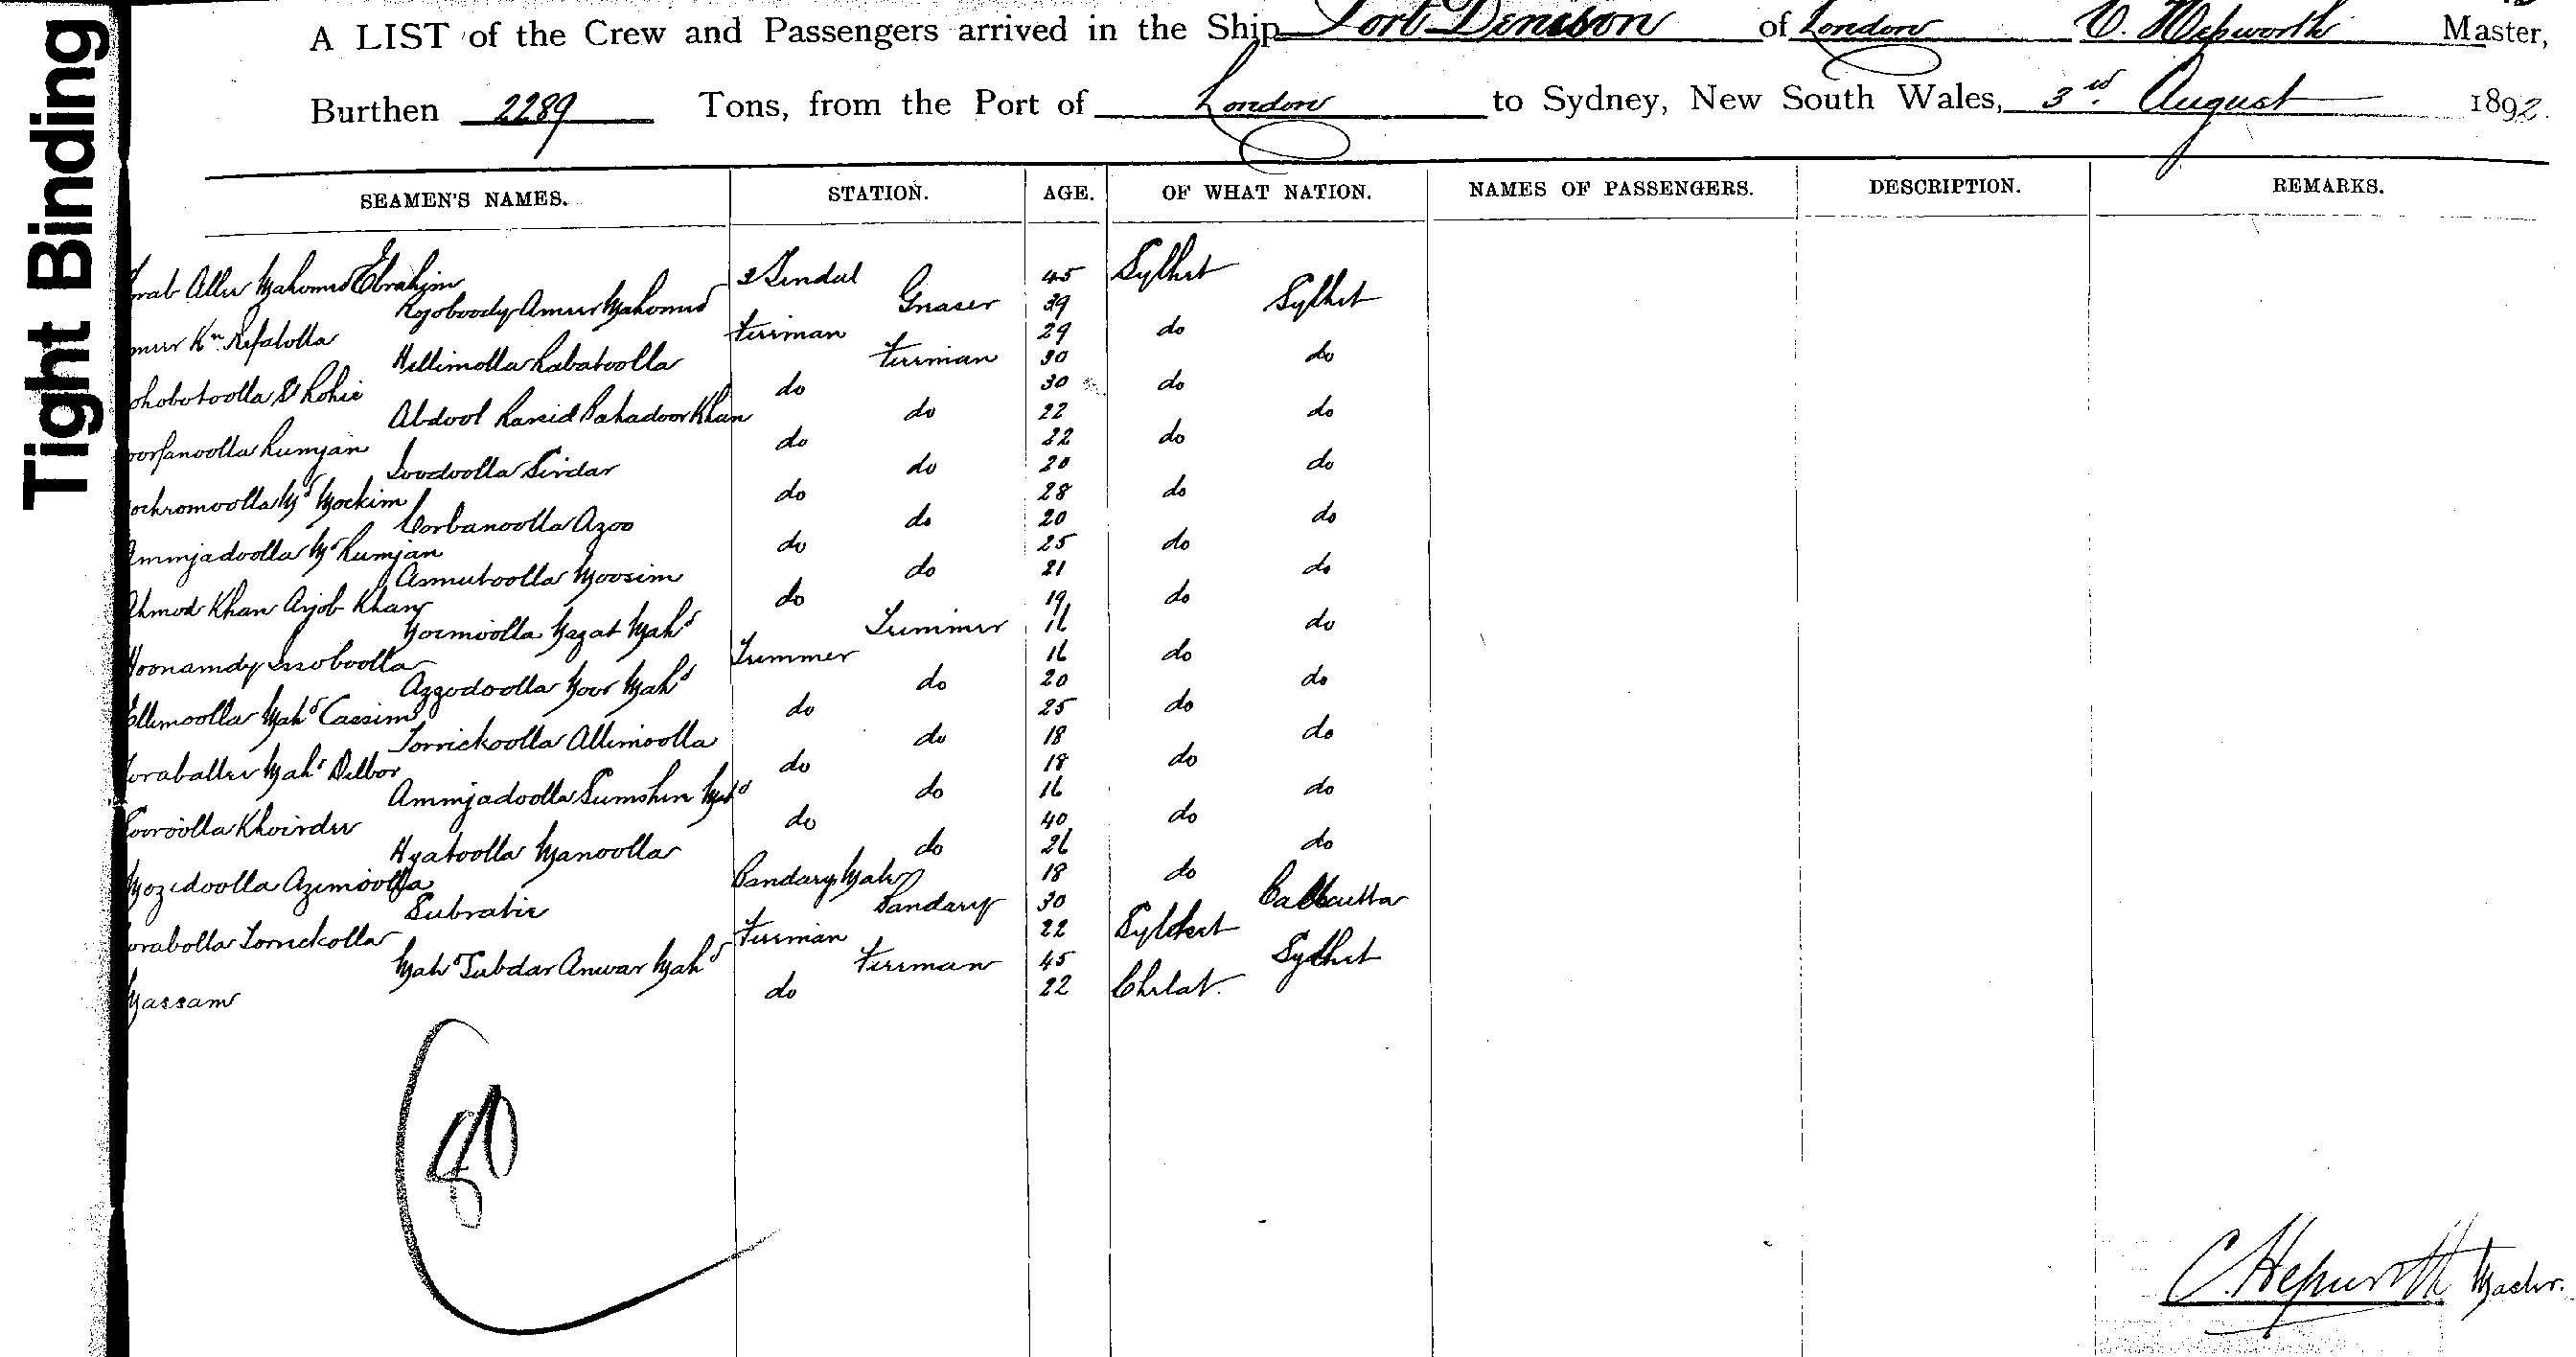 Tight Binding
A LIST of the Crew and Passengers arrived in the Ship Port Denison of London C. Hepworth Master,
Burthen 2289 Tons, from the Port of London to Sydney, New South Wales, 3rd August 1892.
SEAMEN'S NAMES. STATION. AGE. OF WHAT NATION. NAMES OF PASSENGERS. DESCRIPTION. REMARKS.
Aller Mahomed Ebrahim 2 Tindal 45 Sylhet
Rojoboody Ameer Mahomed 39 Sylhet
Kn. Refatolla Fireman 29 do
Hellimolla Rabatoolla Fireman 30 do
do 30 do
Abdool Rasid Bahadoor Khan do 22 do
Rumjan do 22 do
Soodoolla Sirdar do 20 do
Md Mockim do 28 do
Corbanoolla Azoo do 20 do
Ammjadoolla Md Rumjan do 25 do
Asmutoolla Moosim do 21 do
Ahmod Khan Arjob Khan do 19 do
Mahd Trimmer 16 do
Trimmer 16 do
Azzodoolla Noor Mahd do 20 do
Ellimoolla Mahd Cassim do 25 do
Torrickoolla Allimoolla do 18 do
Toraballee Mahd Dilbor do 18 do
Ammjadoolla Sumsher Mahd do 16 do
Khoirdee do 40 do
Hyatoolla Manoolla do 26 do
Mozidoolla Azimoolla Bandary Mate 18 do
Subratie Bandary 30 Calcutta
Torrickolla Fireman 22 Sylhet
Mahd Tubdar Anwar Mahd Fireman 45 Sylhet
Hassam do 22 Chilat
80
C. Hepworth Master.